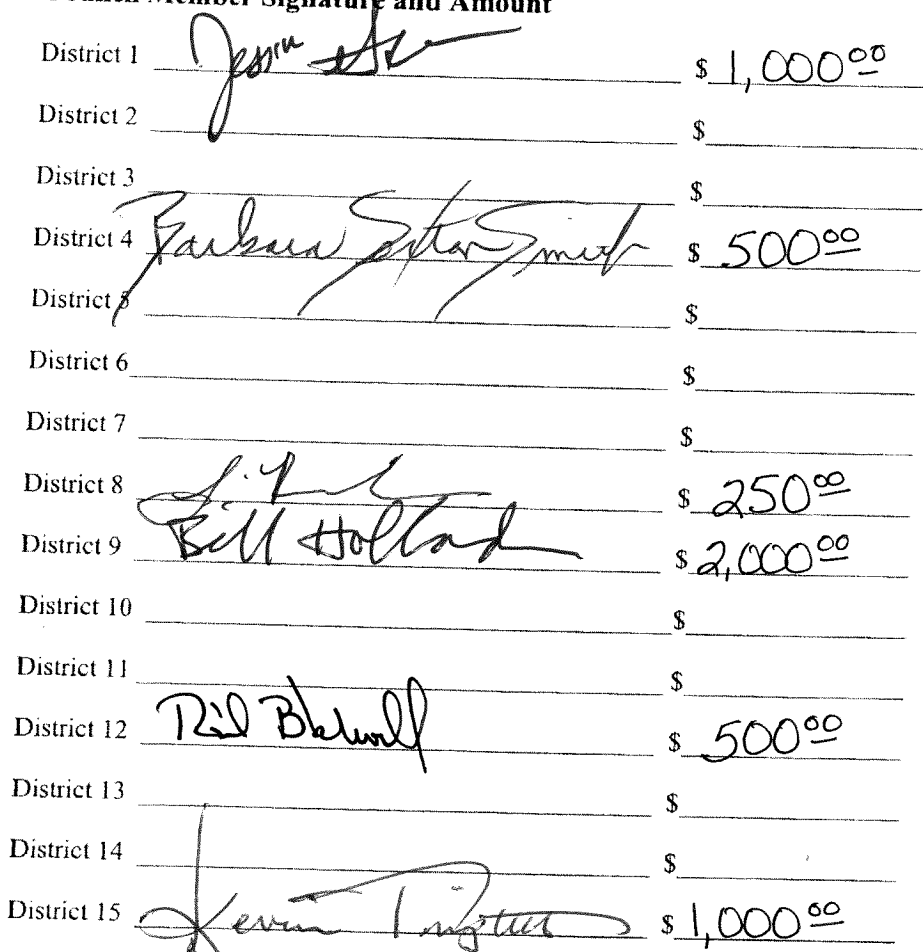 Member Signature and Amount
District 1 Jessica $ 1,000.00
District 2 $
District 3 $
District 4 Barbara Sexton Smith $ 500.00
District 5 $
District 6 $
District 7 $
District 8 $ 250.00
District 9 Bill Hollander $ 2,000.00
District 10 $
District 11 $
District 12 Rick Blackwell $ 500.00
District 13 $
District 14 $
District 15 Kevin Triplett $ 1,000.00